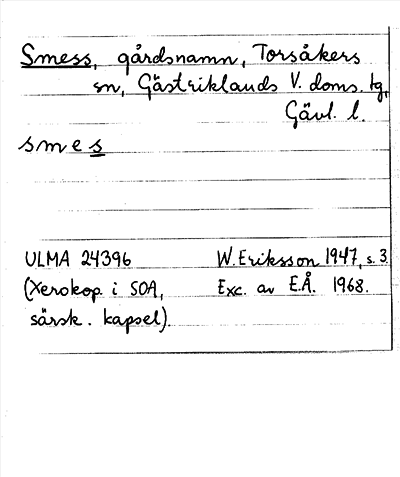 Smess, gårdsnamn, Torsåkers
sn, Gästriklands V. doms. tg,
Gävl. l.
smes
ULMA 24396 W. Eriksson 1947, s. 3
(Xerokop. i SOA, Exc. av E.Å. 1968.
särsk. kapsel).